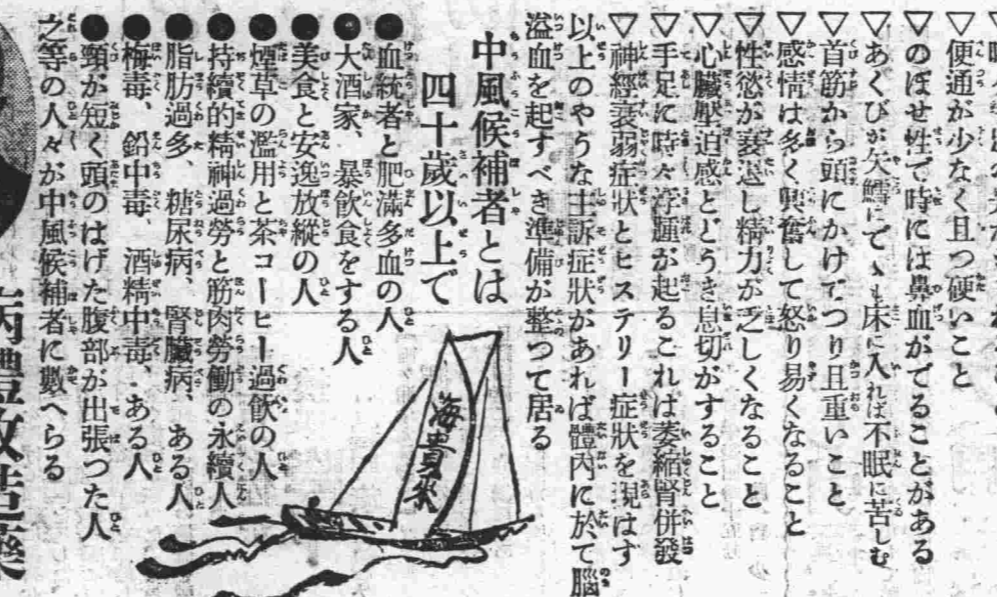 ▽便通が少なく且つ硬いこと
▽のぼせ性で時には鼻血がでることがある
▽あくびが矢鱈にでゝも床に入れば不眠に苦しむ
▽首筋から頭にかけてつり且重いこと
▽感情は多く興奮して怒り易くなること
▽性慾が衰退し精力が乏しくなること
▽心臟壓迫感とどうき息切がすること
▽手足に時々浮腫が起るこれは萎縮腎併發
▽神經衰弱症狀とヒステリー症狀を現はす
以上のやうな主訴症狀があれば體內に於て腦
溢血を起すべき準備が整つて居る
中風候補者とは
四十歲以上で
●血統者と肥滿多血の人
●大酒家、暴飮食をする人
●美食と安逸放縱の人
●煙草の濫用と茶コーヒー過飮の人
●持續的精神過勞と筋肉勞働の永續人
●脂肪過多、糖尿病、腎臟病、ある人
●梅毒、鉛中毒、酒精中毒、ある人
●頸が短く頭のはげた腹部が出張つた人
之等の人々が中風候補者に數へらる
海貴